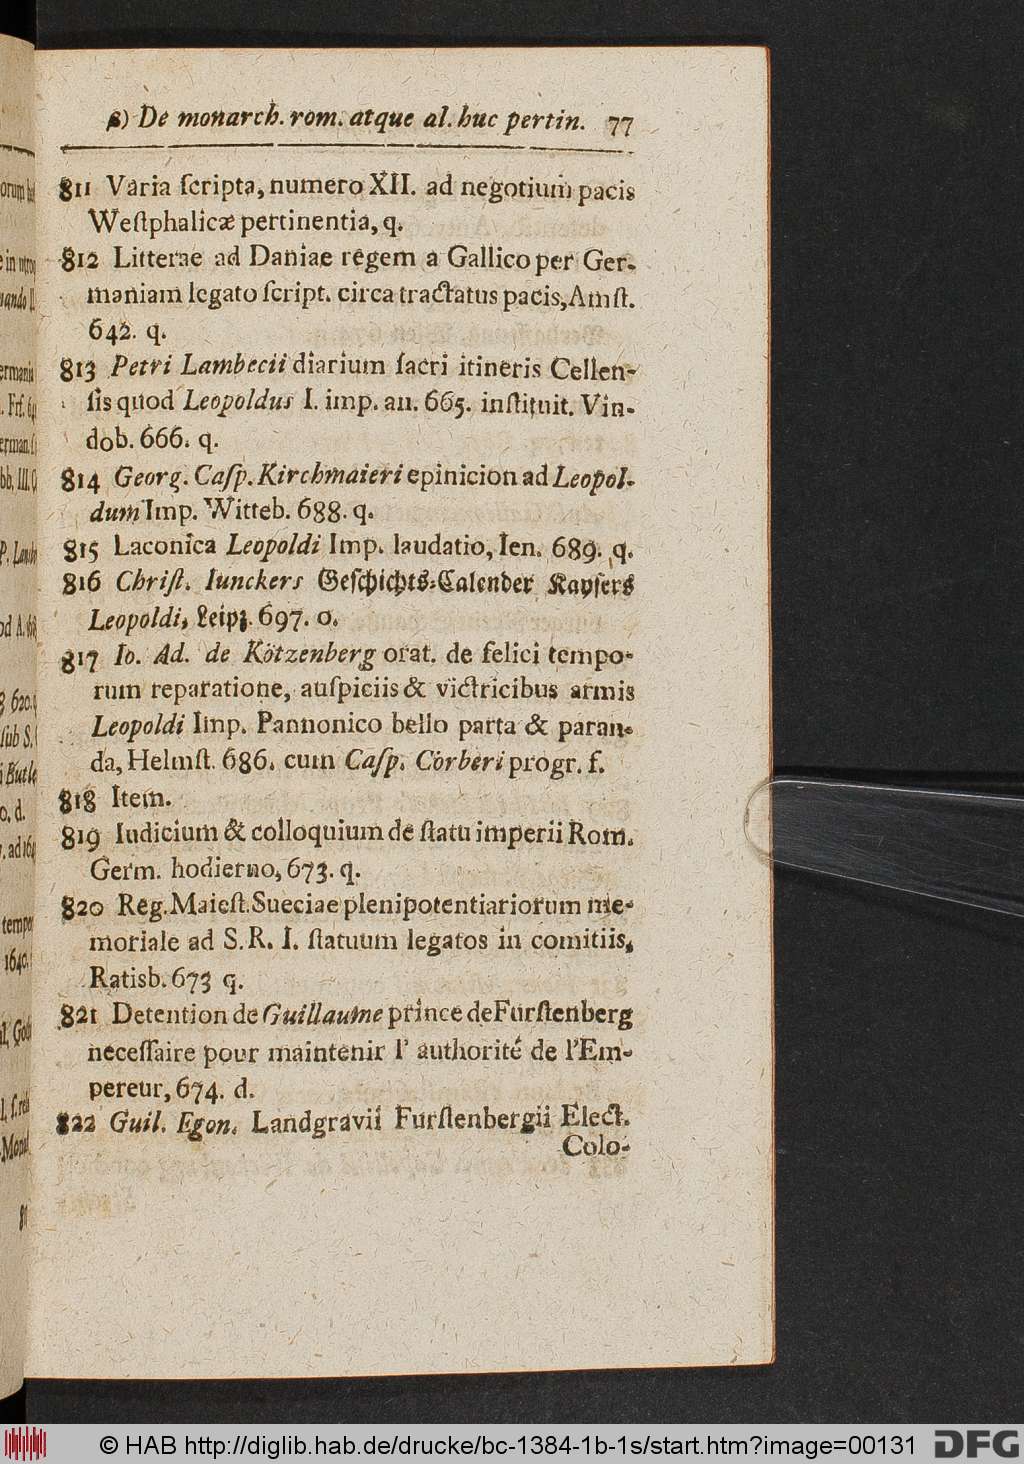 β) De monarch. rom. atque al. huc pertin. 77
811 Varia ſcripta, numero XII. ad negotium pacis
Weſtphalicæ pertinentia, q.
812 Litterae ad Daniae regem a Gallico per Ger-
maniam legato ſcript. circa tractatus pacis, Amſt.
642. q.
813 Petri Lambecii diarium ſacri itineris Cellen-
ſis quod Leopoldus I. imp. an. 665. inſtituit. Vin-
dob. 666. q.
814 Georg. Caſp. Kirchmaieri epinicion ad Leopol-
dum Imp. Witteb. 688. q.
815 Laconica Leopoldi Imp. laudatio, Ien. 689. q.
816 Chriſt. Iunckers Geſchichts-Calender Kayſers
Leopoldi, Leipz. 697. o.
817 Io. Ad. de Kötzenberg orat. de felici tempo-
rum reparatione, auſpiciis & victricibus armis
Leopoldi Imp. Pannonico bello parta & paran-
da, Helmſt. 686. cum Caſp. Corberi progr. f.
818 Item.
819 Iudicium & colloquium de ſtatu imperii Rom.
Germ. hodierno, 673. q.
820 Reg. Maieſt. Sueciae plenipotentiariorum me-
moriale ad S. R. I. ſtatuum legatos in comitiis,
Ratisb. 673 q.
821 Detention de Guillaume prince de Furſtenberg
neceſſaire pour maintenir l' authorité de l'Em-
pereur, 674. d.
822 Guil. Egon. Landgravii Furſtenbergii Elect.
Colo-
© HAB http://diglib.hab.de/drucke/bc-1384-1b-1s/start.htm?image=00131
DFG